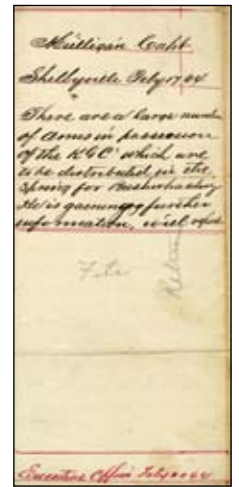 Mulligan Capt
Shelbyville Feby 17 64
There are a large number
of arms in possession
of the KGC which are
to be distributed in the
Spring for Bushwhacking
He is gaining further
information, will
File
Executive Office Feby 20 64